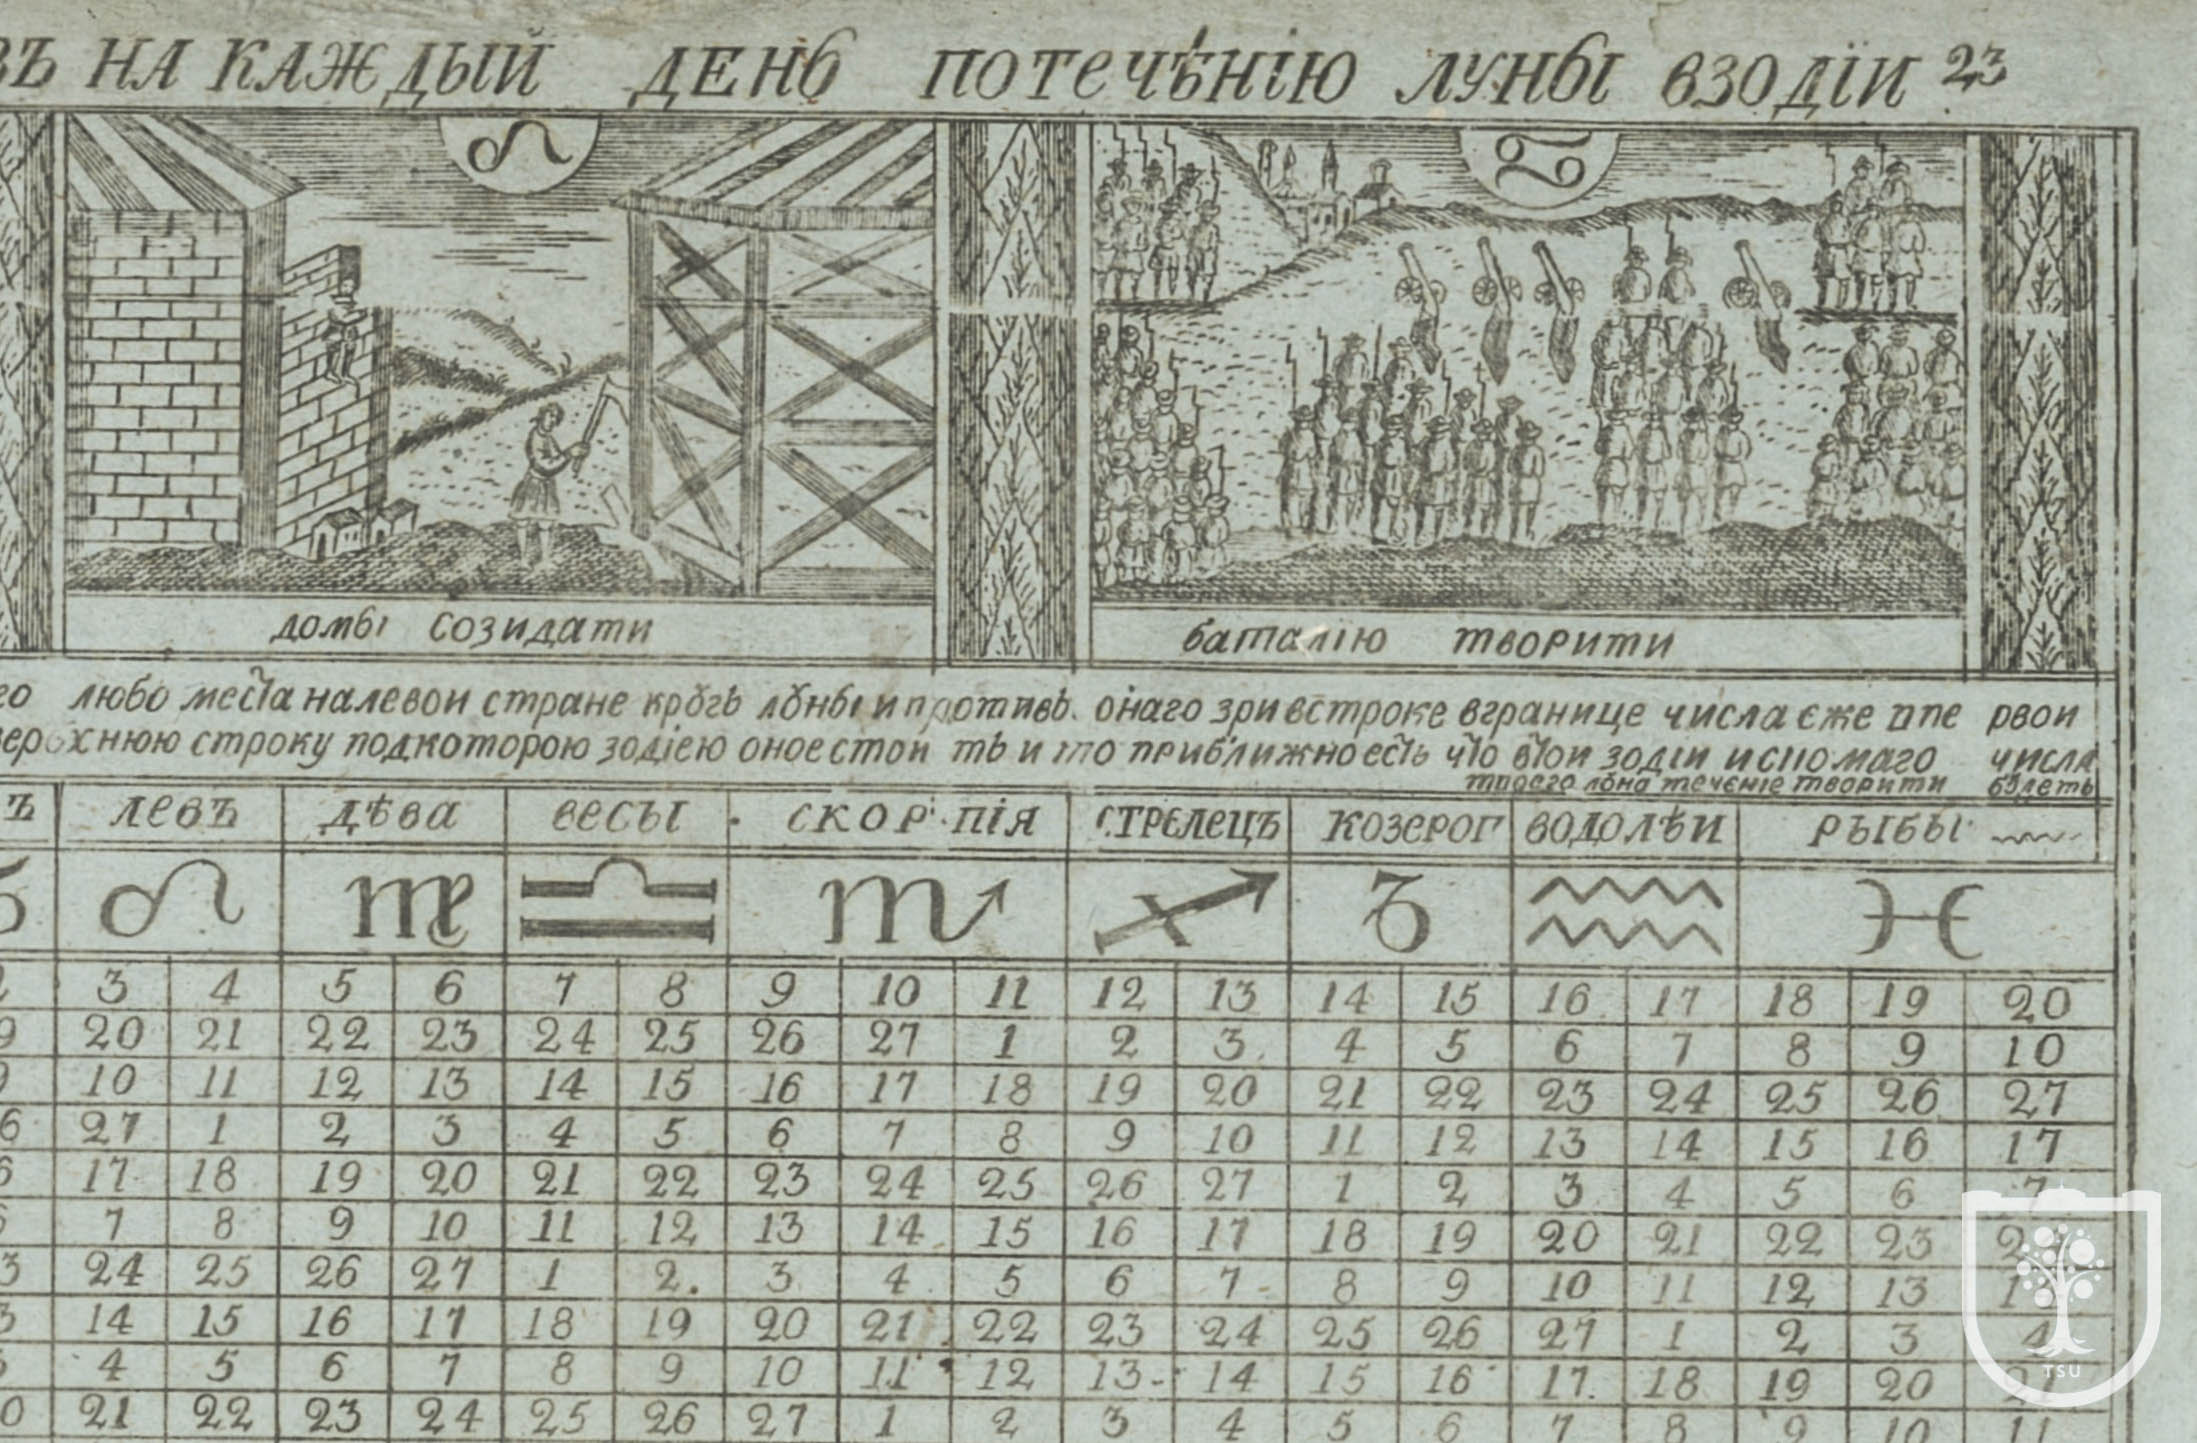 ВЪ НА КАЖДЫЙ ДЕНЬ ПОТЕЧѢНІЮ ЛУНЫ ВЗОДІИ 23
домы созидати
баталію творити
го любо места налевои стране крꙋгъ лꙋны и противъ онаго зри встроке вгранице числа єже ппе рвои
верхнюю строку подкоторою зодіею оное стои тъ и то приближно есть что втои зодіи испомаго числа
твоего лꙋна теченіе творити бꙋдеть
Ъ ЛЕВЪ ДѢВА ВЕСЫ СКОР ПІЯ СТРЄЛЕЦЪ КОЗЕРОГ ВОДОЛѢИ РЫБЫ
♌ ♍ ♎ ♏ ♐ ♑ ♒ ♓
3 4 5 6 7 8 9 10 11 12 13 14 15 16 17 18 19 20
9 20 21 22 23 24 25 26 27 1 2 3 4 5 6 7 8 9 10
9 10 11 12 13 14 15 16 17 18 19 20 21 22 23 24 25 26 27
6 27 1 2 3 4 5 6 7 8 9 10 11 12 13 14 15 16 17
6 17 18 19 20 21 22 23 24 25 26 27 1 2 3 4 5 6 7
6 7 8 9 10 11 12 13 14 15 16 17 18 19 20 21 22 23
3 24 25 26 27 1 2 3 4 5 6 7 8 9 10 11 12 13
3 14 15 16 17 18 19 20 21 22 23 24 25 26 27 1 2 3 4
4 5 6 7 8 9 10 11 12 13 14 15 16 17 18 19 20
0 21 22 23 24 25 26 27 1 2 3 4 5 6 7 8 9 10 11
TSU